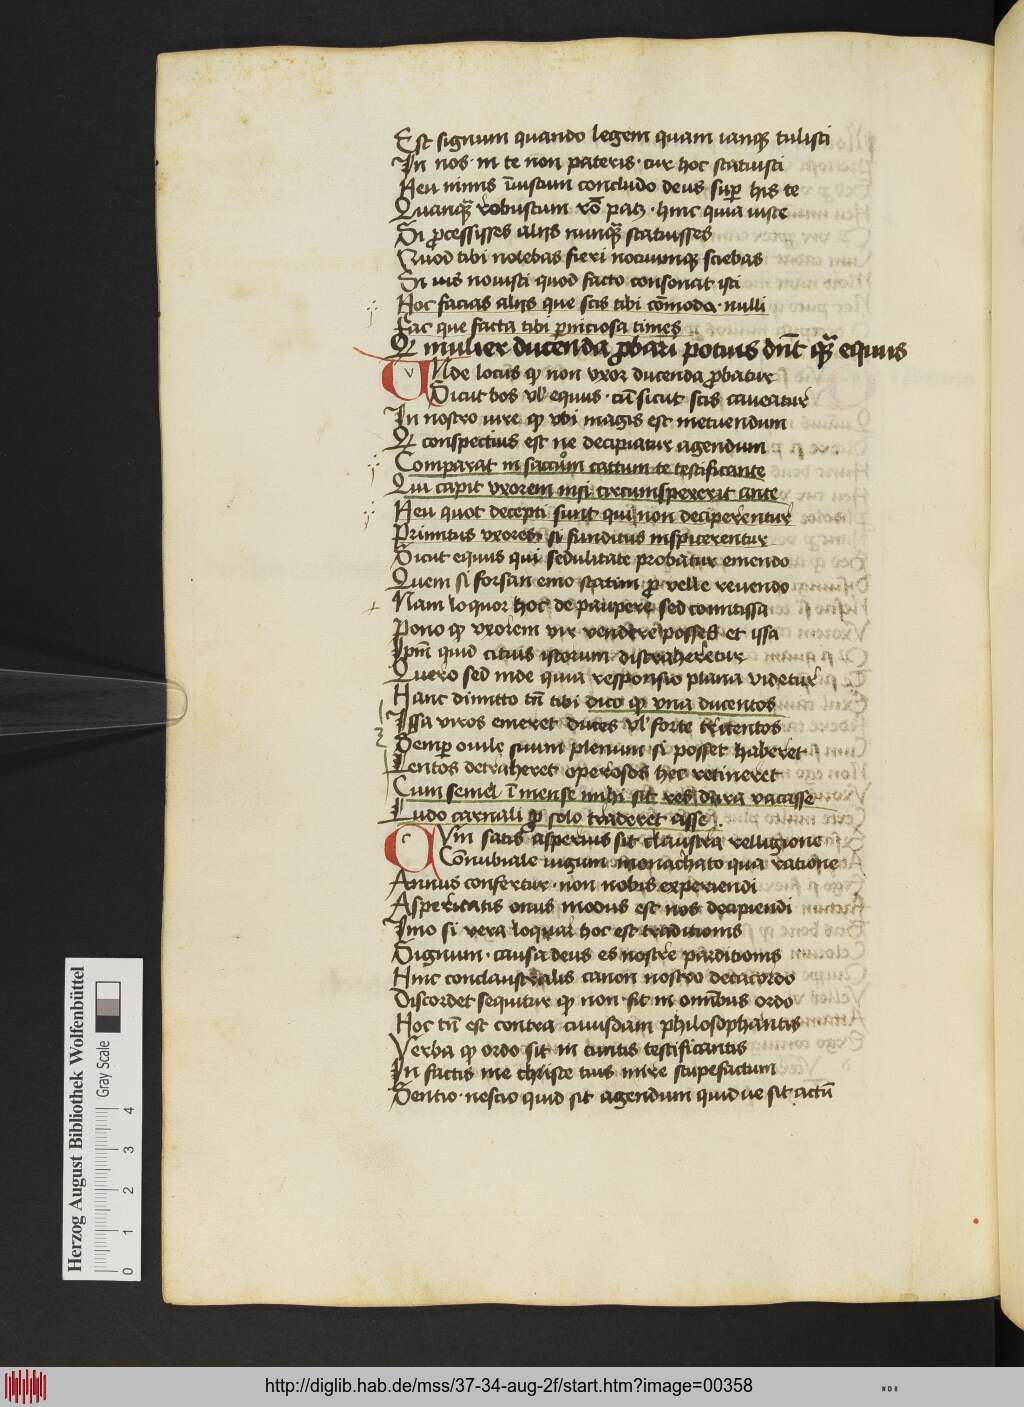 Est signum quando legem quam ianq; tulisti
In nos · in te non pateris · cur hoc statuisti
Heu nimis iniustum concludo deus sup his te
Quanq̃ robustum rō patz · hinc quia iuste
Si pcessisses alijs nunq̃ statuisses
Quod tibi nolebas fieri nocuumq; sciebas
Si ius nouisti quod facto consonat isti
Hoc facias alijs que scis tibi cōmoda · nulli
Fac que facta tibi pniciosa times
Qz mulier ducenda pbari potius dnt̄ q̃ equus
VNde locus qz non vxor ducenda pbatur
Sicut bos vl equus · cū sicut scis caueatur
In nostro iure qz vbi magis est metuendum
Qz conspectius est ne decipiatur agendum
Comparat in saccum cattum te testificante
Qui capit vxorem nisi circumspexerit ante
Heu quot decepti sunt qui non deciperentur
Primitus vxores si funditus inspicerentur
Sicut equus qui sedulitate probatur emendo
Quem si forsan emo statim p velle reuendo
Nam loquor hoc de paupere sed comitissa
Pono qz vxorem vir vendere posset et issa
Ipm̄ quid citius istorum distraheretur
Quero sed inde quia responsio plana videtur
Hanc dimitto tn̄ tibi dico qz vna ducentos
Issa viros emeret duces vl forte tricentos
Semp ouile suum plenum si posset haberet
Lentos detraheret operosos hec retineret
Cum semel ī mense mihi sit res dura vacasse
Ludo carnali p solo traderet asse
CVm satis asperius sit claustra relligione
Connubiale iugum monachato qua ratione
Annus confertur · non nobis experiendi
Asperitatis onus modus est nos decipiendi
Imo si vera loquar hoc est traditionis
Signum · causa deus es nostre parditionis
Hinc conclaustralis canon nostro decacordo
Discordet sequitur qz non sit in omībus ordo
Hoc tn̄ est contra cuiusdam philosophantis
Verba qz ordo sit in cuntis testificantis
In factis me christe tuis mire stupefactum
Sentio · nescio quid sit agendum quid ue sit actū
Herzog August Bibliothek Wolfenbüttel
Gray Scale
0 1 2 3 4
http://diglib.hab.de/mss/37-34-aug-2f/start.htm?image=00358